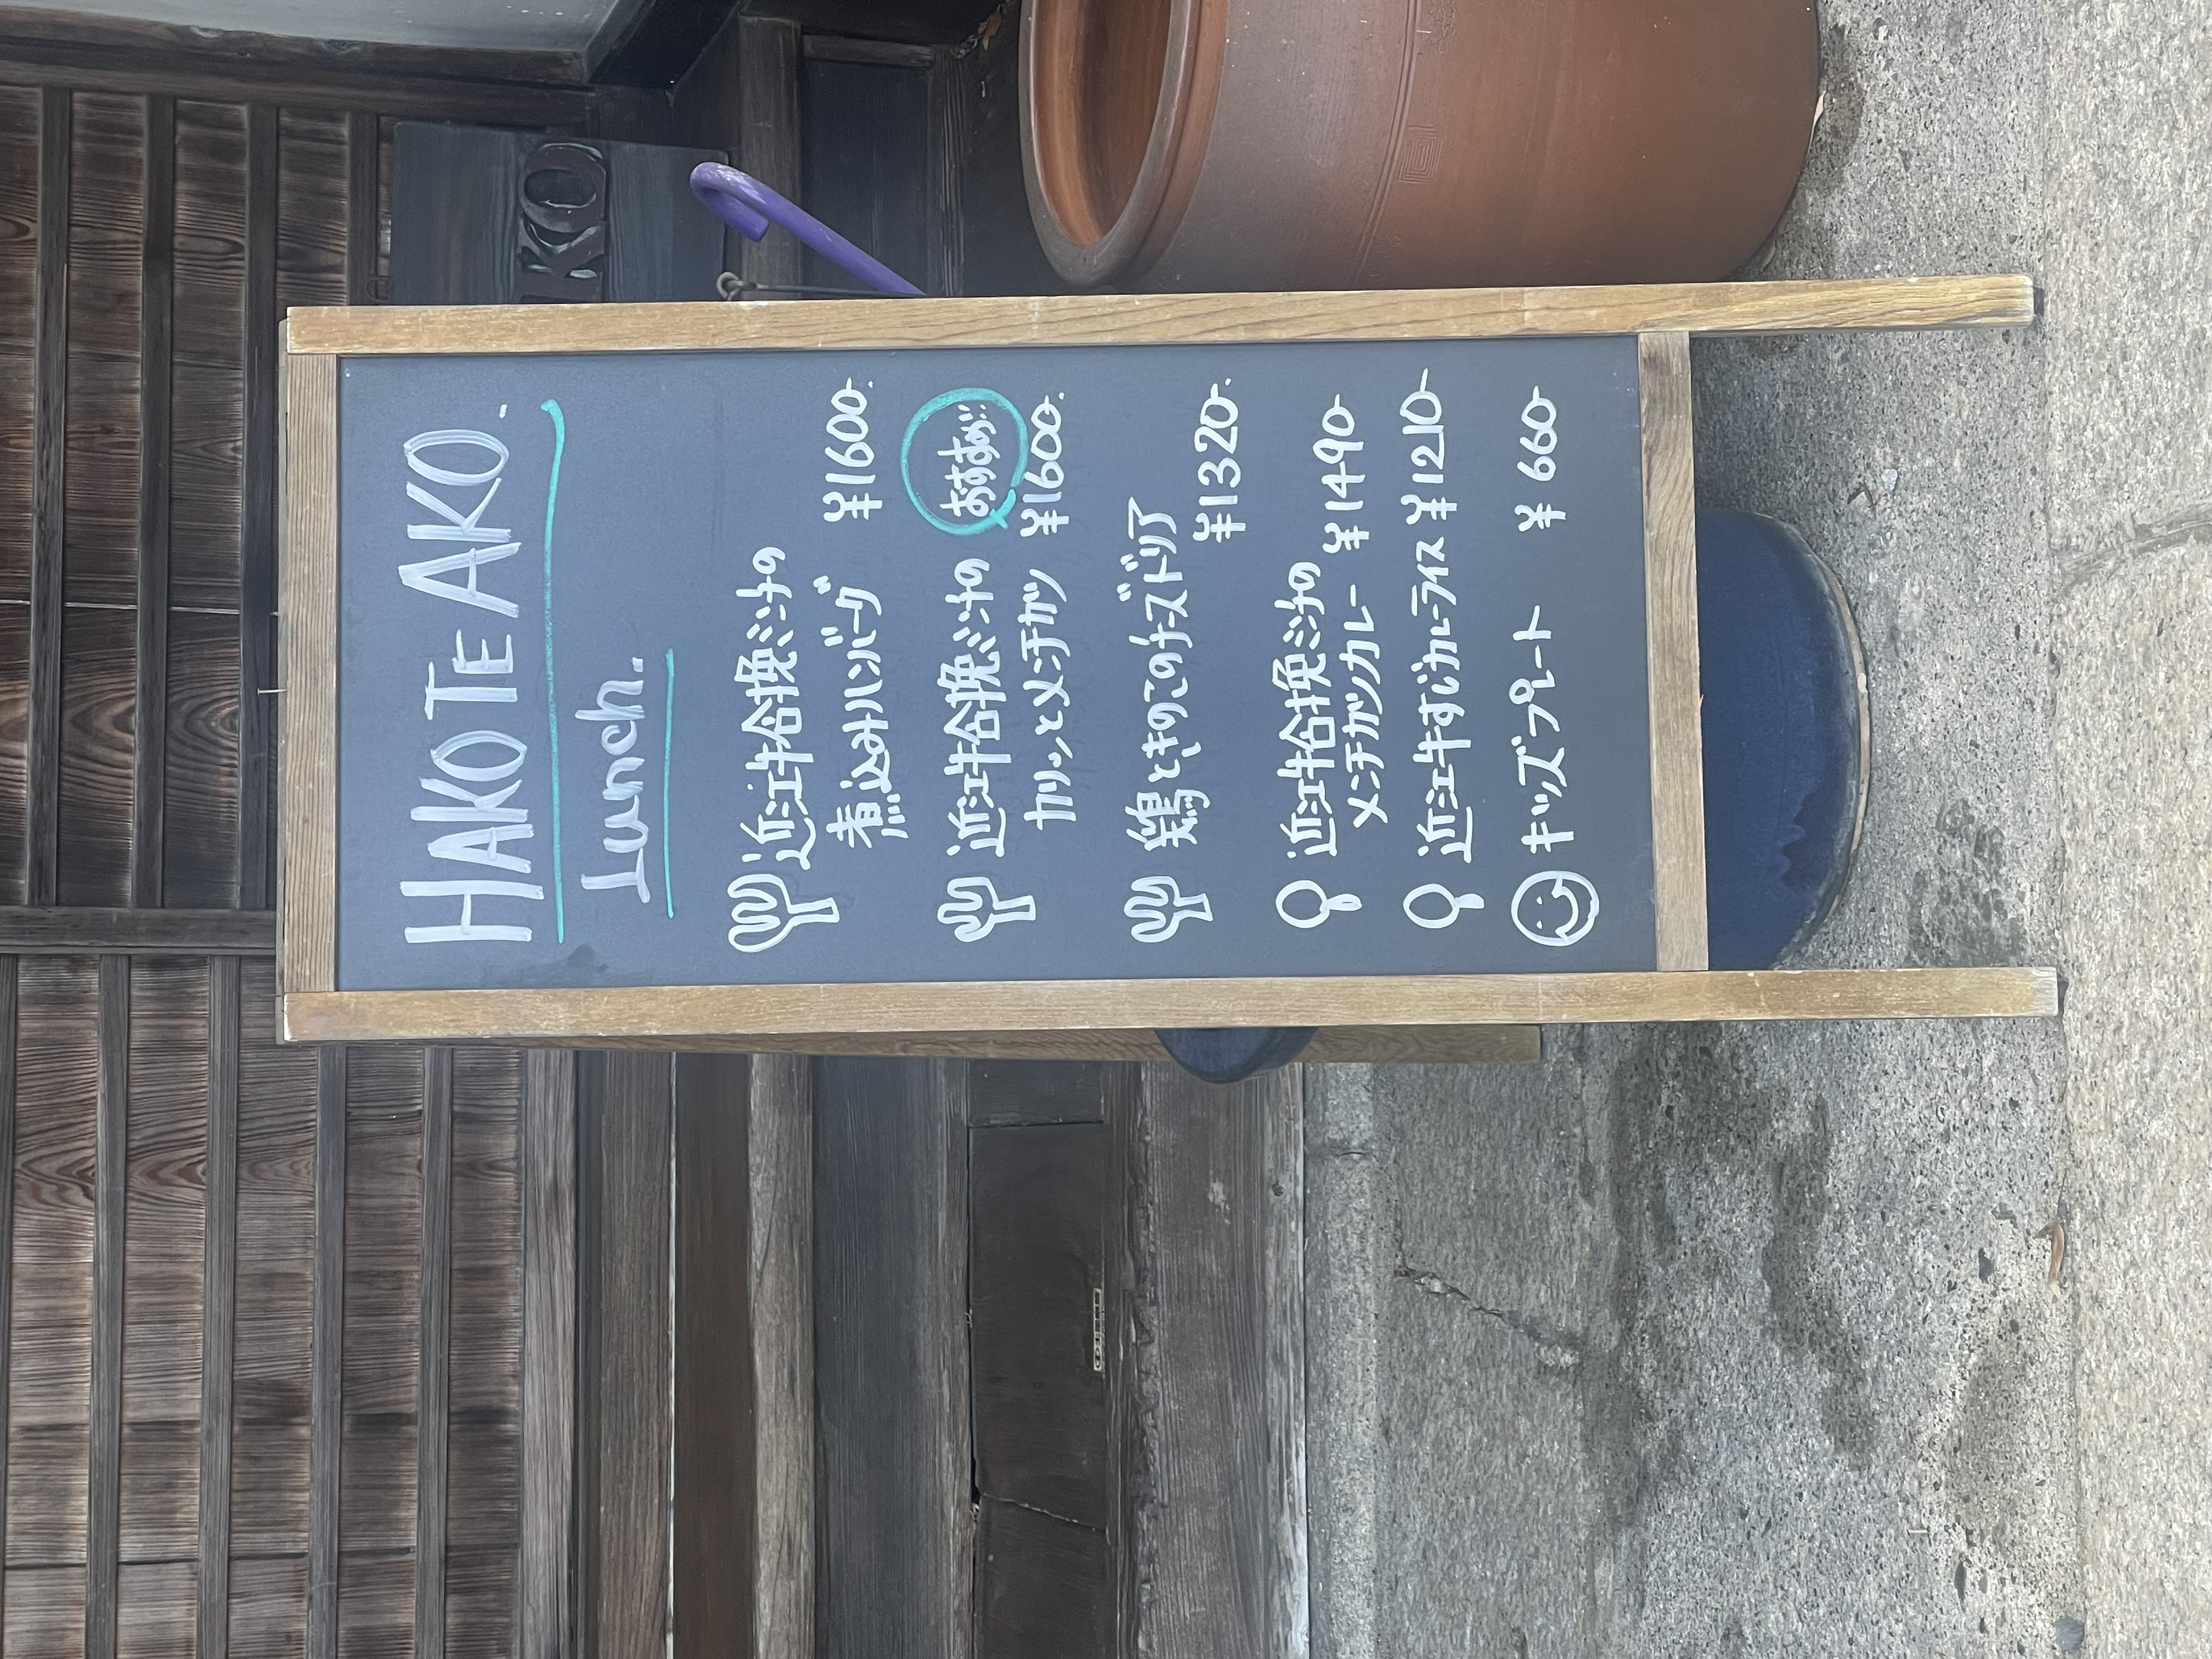 HAKO TE AKO.
Lunch.
近江牛合挽ミンチの
煮込みハンバーグ
¥1600-.
おすすめ!!
近江牛合挽ミンチの
カリッとメンチカツ ¥1600-.
鶏ときのこのチーズドリア
¥1320-.
近江牛合挽ミンチの
メンチカツカレー ¥1490-
近江牛すじカレーライス ¥1210-
キッズプレート ¥660-
KO